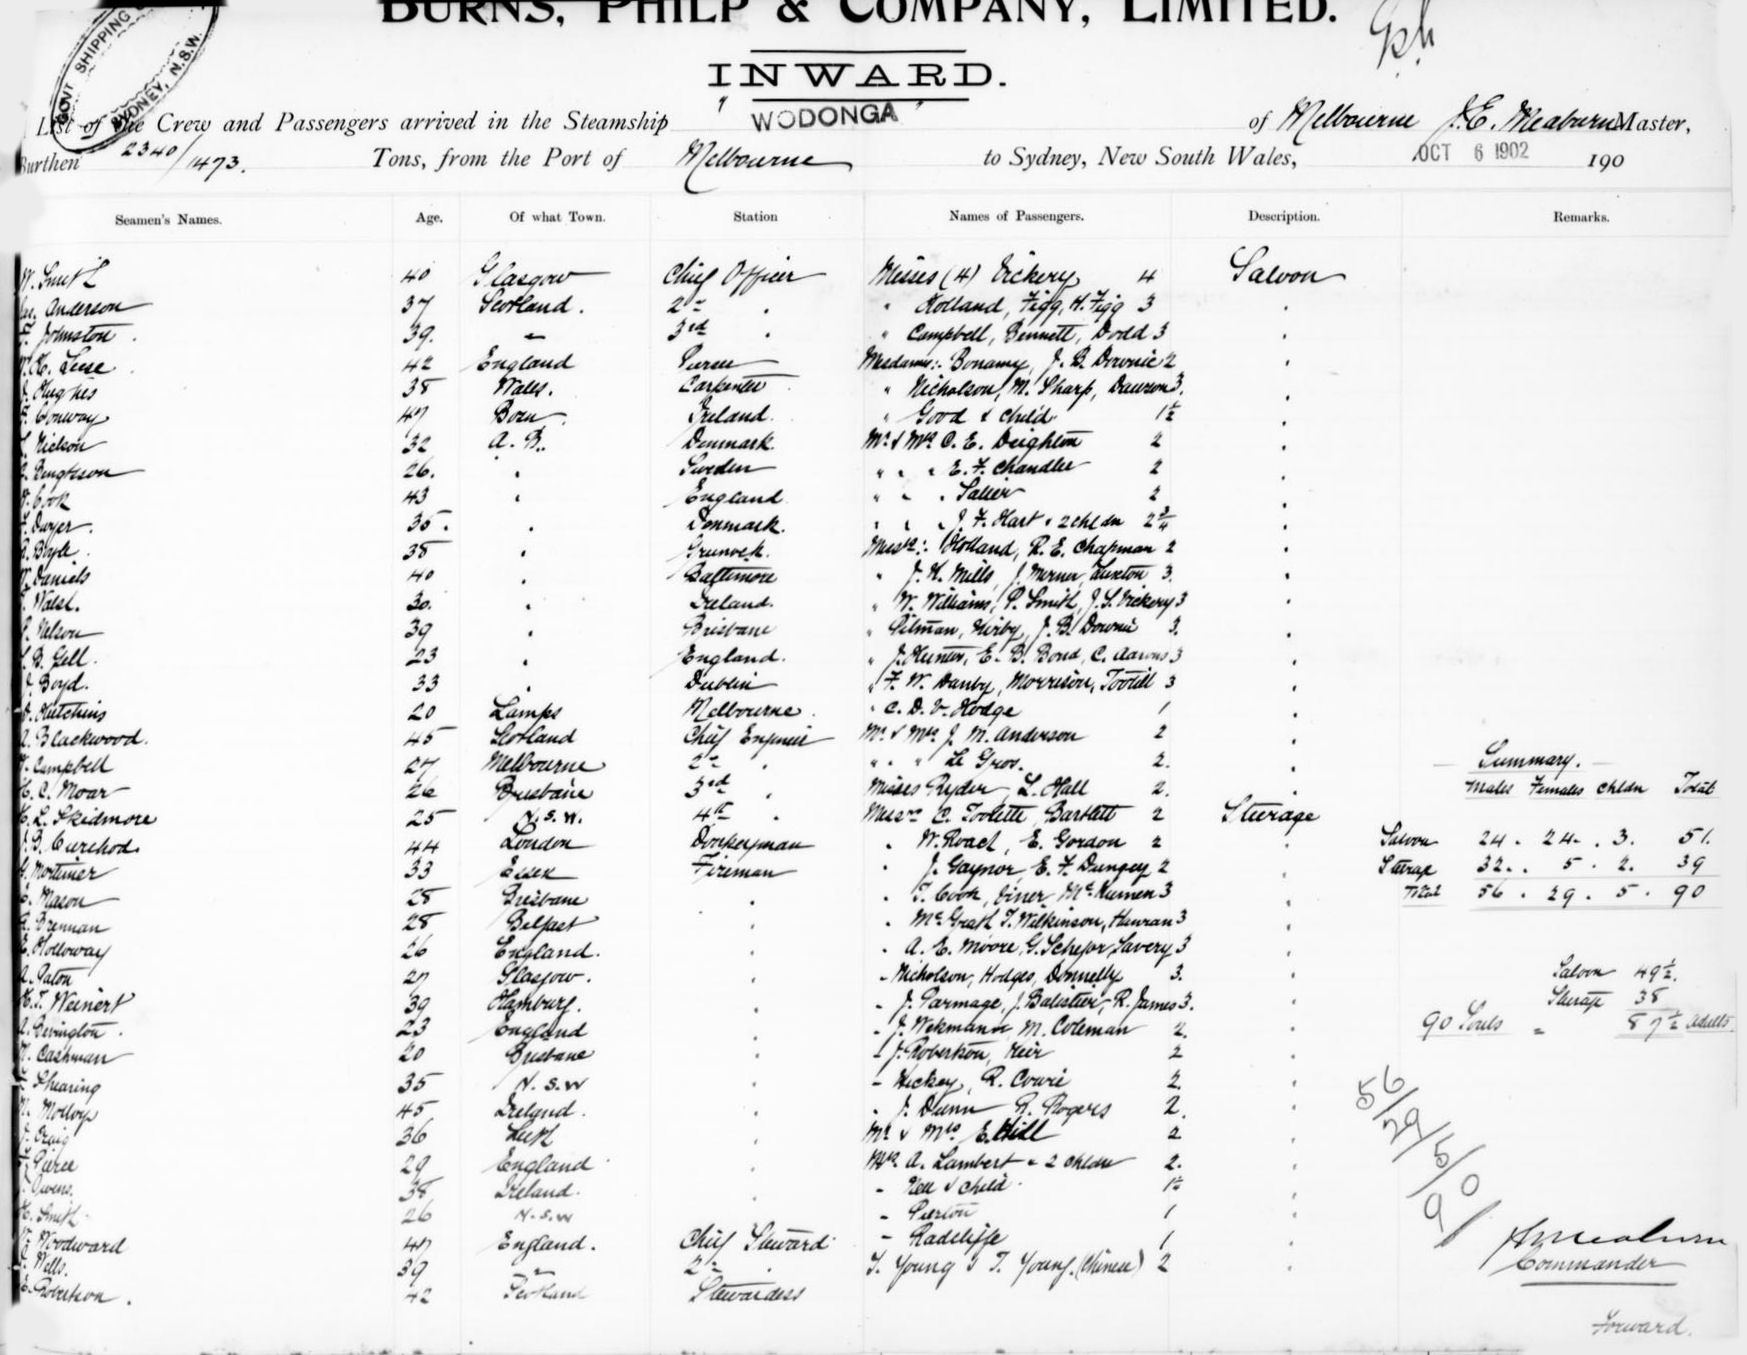 BURNS, PHILP & COMPANY, LIMITED.
INWARD.
GOVT SHIPPING
SYDNEY, N.S.W.
List of the Crew and Passengers arrived in the Steamship "WODONGA" of Melbourne J. E. Meaburn Master,
Burthen 2340/1473. Tons, from the Port of Melbourne to Sydney, New South Wales, OCT 6 1902 190
Seamen's Names. Age. Of what Town. Station Names of Passengers. Description. Remarks.
W. Smith 40 Glasgow Chief Officer Misses (4) Vickery 4 Saloon
Anderson 37 Scotland. 2nd " Holland, Figg, H. Figg 3
Johnston 39. " 3rd " Campbell, Bennett, Dodd 3
Leese 42 England Purser Mesdames: Bonamy, J. B. Downie 2
Hughes 38 Wales. Carpenter " Nicholson, M. Sharp, Dawson 3.
Conway 47 Bosn Ireland. " Good & child 1½
Nielson 32 A.B. Denmark. Mr & Mrs C. E. Deighton 2
Bengtsson 26. Sweden " " " E. F. Chandler 2
Cook 43 England " " " Salier 2
Dwyer. 35. Denmark. " " " J. F. Hart & 2 chldn 2¾
Boyle. 38 Greenock. Messrs: Holland, R. E. Chapman 2
Daniels 40 Baltimore " J. H. Mills, J. Merner, Luxton 3.
Walsh. 30. Ireland. " W. Williams, P. Smith, J. S. Vickery 3
Nelson 39 Brisbane " Pitman, Kirby, J. B. Downie 3.
B. Gell. 23 England. " J. Hunter, E. B. Bond, C. Aarons 3
Boyd. 33 Dublin " F. W. Danby, Morrison, Toohill 3
Hutchins 20 Lamps Melbourne. " C. D. V. Hodge 1
A. Blackwood. 45 Scotland Chief Engineer Mr & Mrs J. M. Anderson 2
Campbell 27 Melbourne 2nd " " " Le Gros. 2. Summary.
H. C. Moar 26 Brisbane 3rd Misses Ryder, L. Hall 2. Males Females Chldn Total
H. L. Skidmore 25 N.S.W. 4th Messrs C. Bartlett 2 Steerage
J. B. 44 London Donkeyman " W. Roach, E. Gordon 2 Saloon 24. 24. 3. 51.
G. Mortimer 33 Essex Fireman " J. Gaynor, E. F. Dungey 2 Steerage 32. 5. 2. 39
Mason 28 Brisbane " T. Cook, Viner, 3 Total 56. 29. 5. 90
Brennan 28 Belfast " McGrath, T. Wilkinson, Hanran 3
Holloway 26 England. " A. E. Moore, G. Lavery 3
A. Paton 27 Glasgow. " Nicholson, Hodges, Donnelly 3. Saloon 49½.
H. T. Weinert 39 Hamburg. " J. Parmage, J. Balistier, R. James 3. Steerage 38
A. Rivington. 23 England " M. Coleman 2. 90 Souls = 87½ Adults.
Cashman 20 Brisbane " J. Robertson, Keir 2
Shearing 35 N.S.W " Hickey, R. Cowie 2.
Molloy 45 Ireland. " J. Dunn R. Rogers 2. 56/29/5/90/
Craig 36 Leith Mr & Mrs E. Hill 2
Pierce 29 England Mrs A. Lambert & 2 chldn 2.
Owens. 38 Ireland. " & child 1½
Smith 26 N.S.W " 1
Woodward 47 England. Chief Steward " Radcliffe 1
Wells. 39 " 2nd T. Young & T. Young. (Chinese) 2 Commander
Robertson. 42 Scotland Stewardess
Forward.